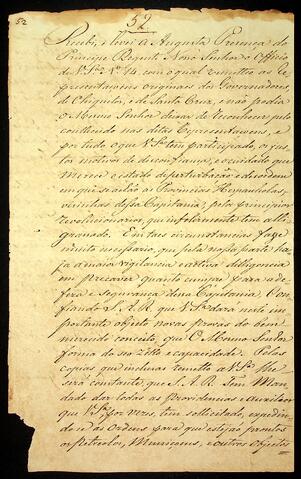 52
52
Recebi, e levei á Augusta Prezença do
Principe Regente Nosso Senhor o Officio
de V. S.ª N.º 14, com o qual remetteo as Re
prezentaçoens originaes dos Governadores,
de Chiquitos, e de Santa Cruz, e não podia
o Mesmo Senhor deixar de reconhecer pelo
contheudo nas ditas Reprezentaçoens, e
por tudo o que V. S.ª tem participado, os jus
tos motivos de desconfiança, e cuidado que
merece o estado de perturbação e desordem
em que se achão as Provincias Hespanholas,
vizinhas dessa Capitania, pelos principios
revolucionarios, que infelizmente tem alli
grassado. Em taes circunstancias faz se
muito necessario, que pela nossa parte ha
ja a maior vigilancia e activa delligencia
em precaver quanto cumpre para a de
feza e segurança dessa Capitania. Con
fiando S. A. R. que V. S.ª dara neste im
portante objecto novas provas do bem
merecido conceito, que O Mesmo Senhor
forma do seu zelo e capacidade. Pelas
copias que incluzas remetto a V. S.ª lhe
será constante, que S. A. R. tem Man
dado dar todas as providencias e auxilios
que V. S.ª por vezes, tem sollicitado, expedin
do se as Ordens para que estejão promtos
os Petrechos, Muniçoens, e outros objectos